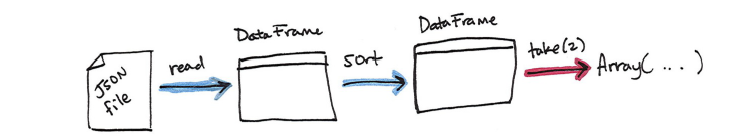 JSON
file
read
DataFrame
sort
DataFrame
take(2)
Array(...)